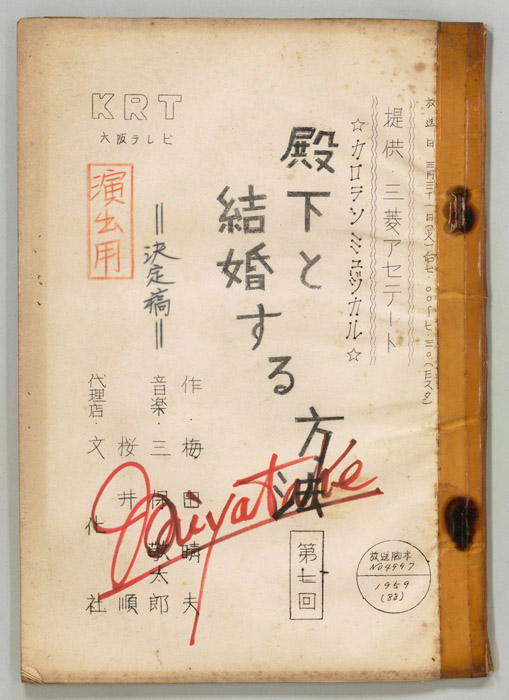 放送日 三月三十一日(火) 后七.〇〇〜七.三〇(Eスタ)
提供・三菱アセテート
☆カロランミュヅカル☆
殿下と
結婚する方法
第七回
KRT
大阪テレビ
演出用
=決定稿=
作・梅田晴夫
音楽・三保敬太郎
桜井順
代理店・文化社
放送脚本
NO4997
1959